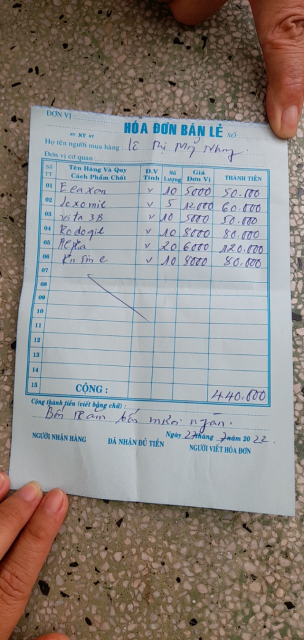 ĐƠN VỊ
HÓA ĐƠN BÁN LẺ SỐ
Họ tên người mua hàng Lê Thị Mỹ Nhung
Đơn vị cơ quan
SỐ TT Tên Hàng Và Quy Cách Phẩm Chất Đ.V Tính Số Lượng Giá Đơn Vị THÀNH TIỀN
01 v 10 5000 50.000
02 v 5 12000 60.000
03 vita 3B v 10 5000 50.000
04 Rodogil v 10 8000 80.000
05 Alpha v 20 6000 120.000
06 v 10 8000 80.000
07
08
09
10
11
12
13
14
15 CỘNG : 440.000
Cộng thành tiền (viết bằng chữ) :
Bốn trăm bốn mươi ngàn.
Ngày 27 tháng 7 năm 2022
NGƯỜI NHẬN HÀNG ĐÃ NHẬN ĐỦ TIỀN NGƯỜI VIẾT HÓA ĐƠN